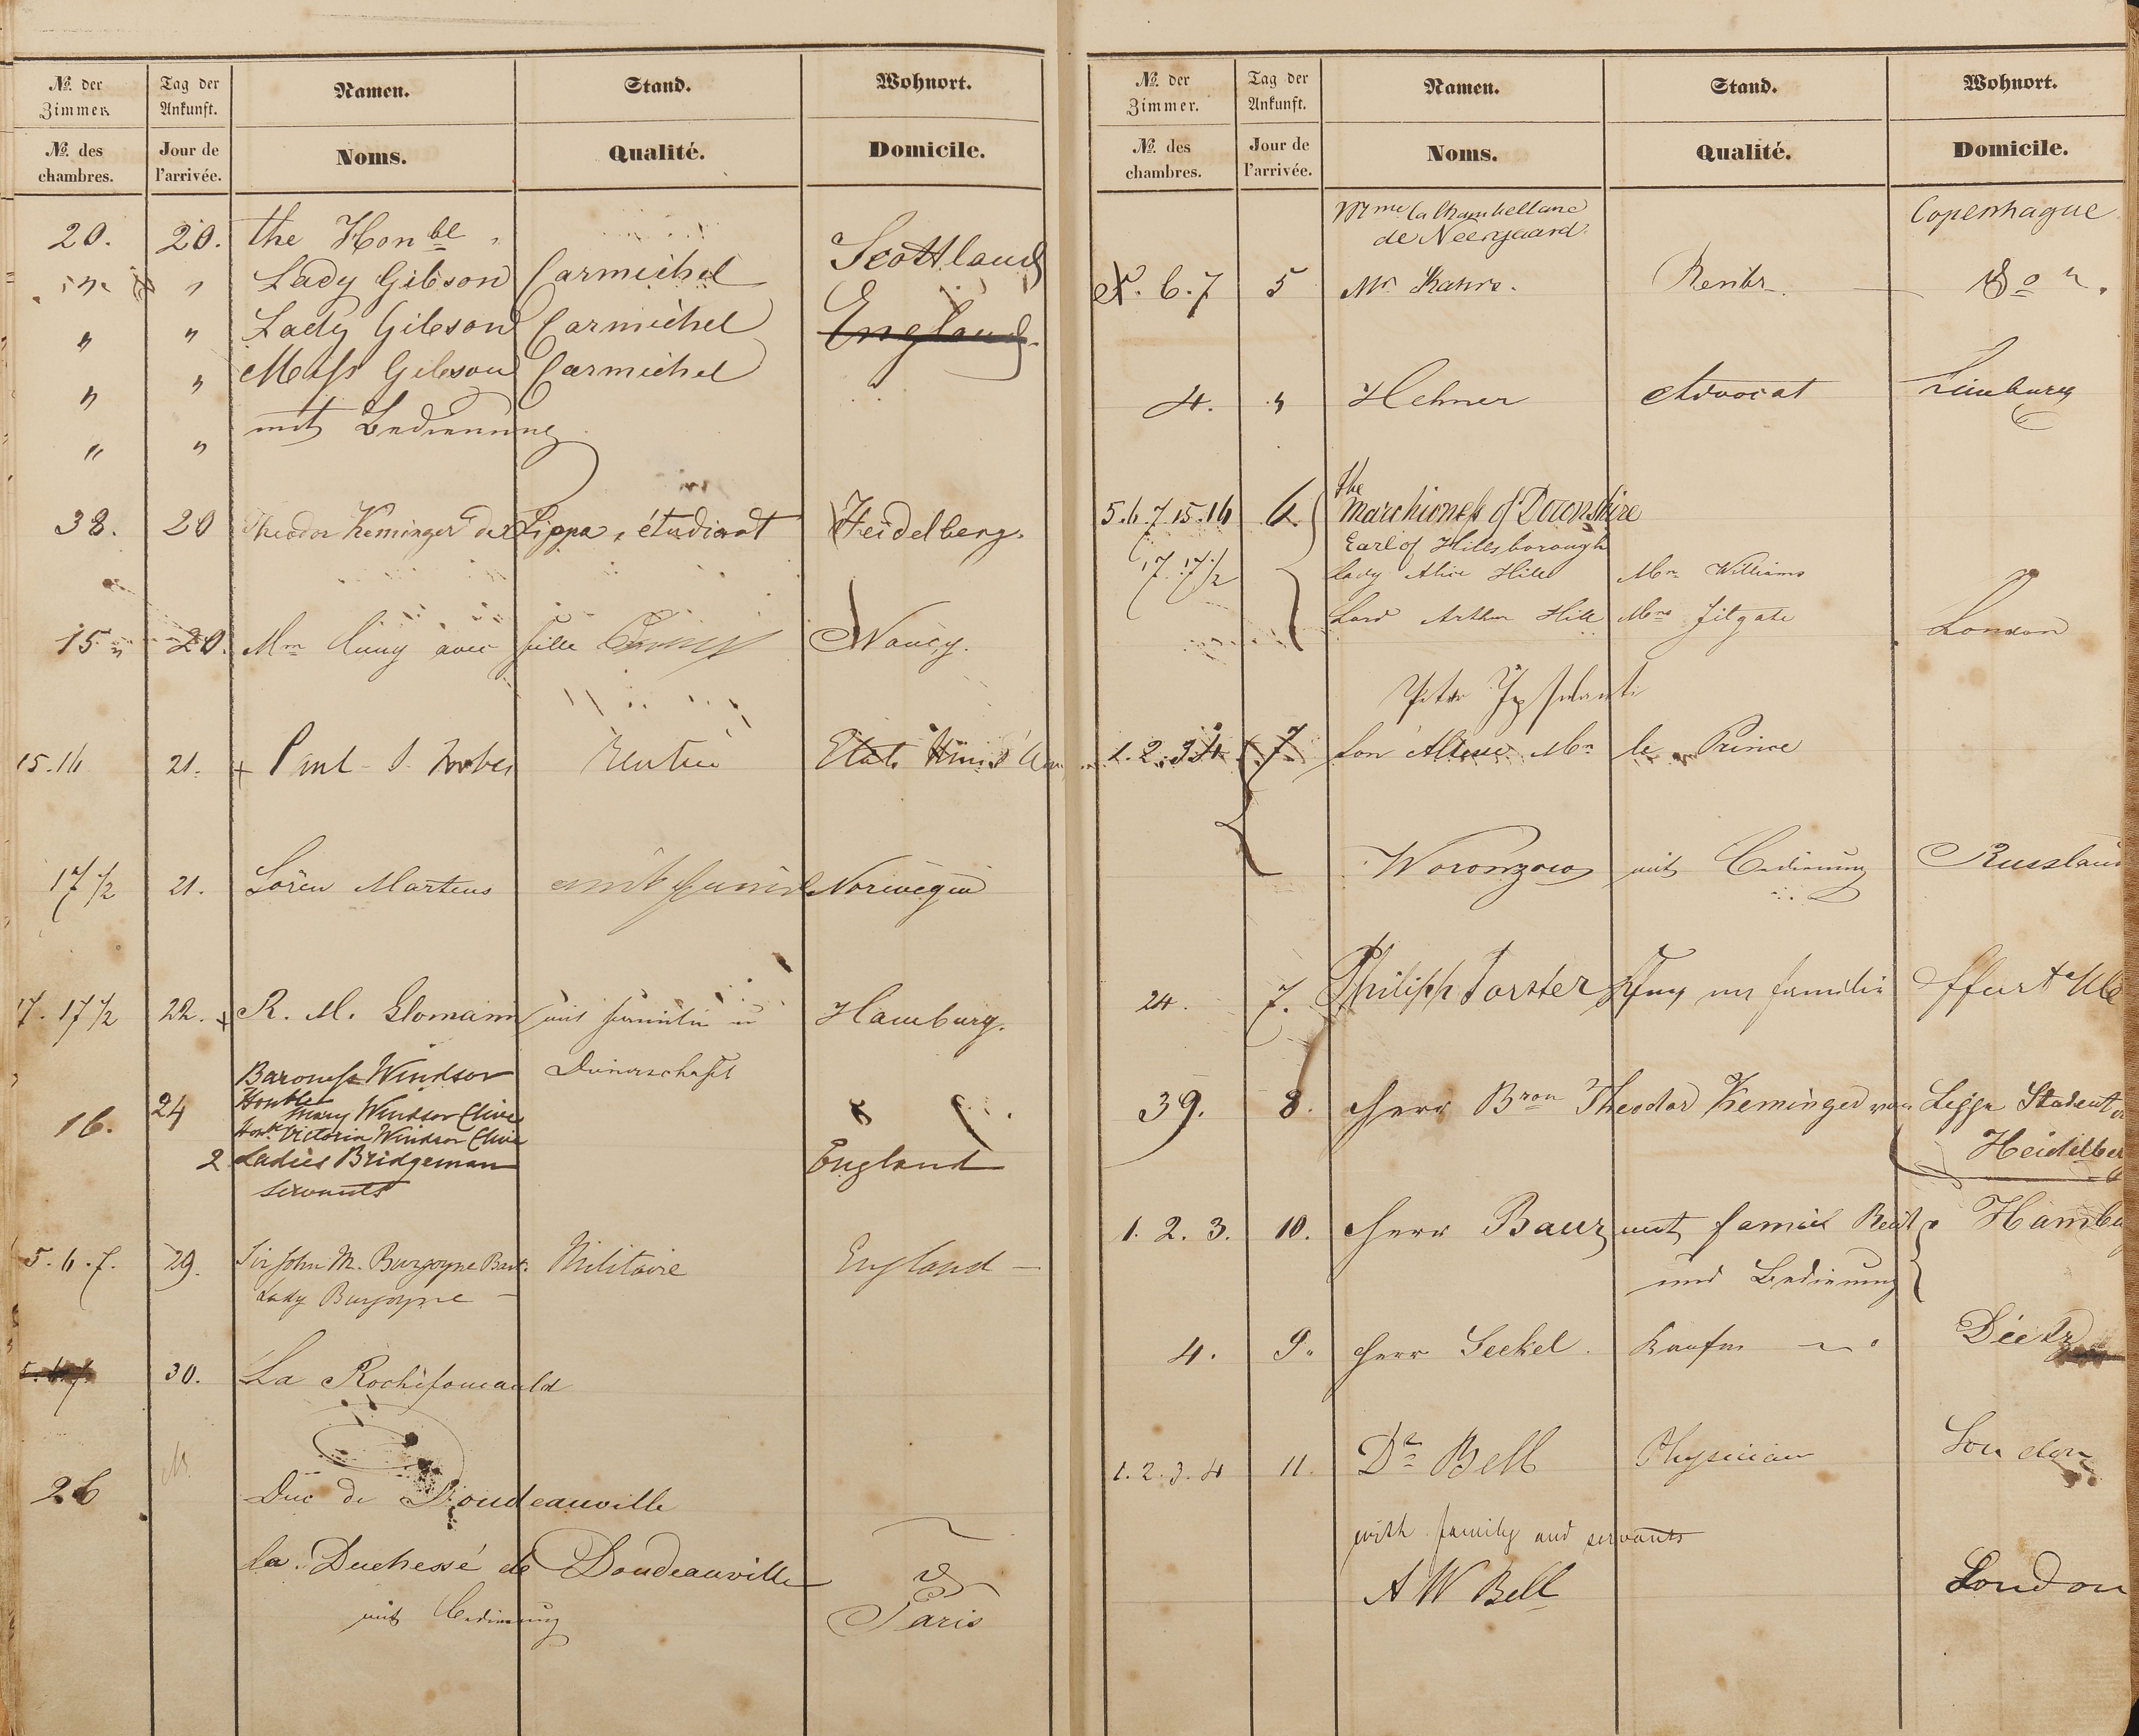 No. der Zimmer. Tag der Ankunft. Namen. Stand. Wohnort.
No. des chambres. Jour de l'arrivée. Noms. Qualité. Domicile.
20. 20. the Honble Scottland
" " Lady Gibson Carmichel
" " Lady Gibson Carmichel England
" " Miss Gibson Carmichel
" " mit Bedienung
38. 20 Theodor Keminger de Lippa, étudiant Heidelberg.
15 20. Mm Cuny avec fille Nancy.
15.16 21. + Paul S. Forbes Rentier Etats Unis
17 1/2 21. Sören Martens Norwegen
17. 17 1/2 22. + R. M. Slomann mit Familie u Hamburg.
Dienerschaft
Baroness Windsor
16. 24 Honble Mary Windsor Clive
Honb Victoria Windsor Clive
2 Ladies Bridgeman England
servants
5.6.7. 29. Sir John M. Burgoyne Bart. Militaire England
Lady Burgoyne
5.6.7 30. La Rochefoucauld
26 Duc de Doudeauville
la Duchesse de Doudeauville
mit Bedienung Paris
No. der Zimmer. Tag der Ankunft. Namen. Stand. Wohnort.
No. des chambres. Jour de l'arrivée. Noms. Qualité. Domicile.
Mme la Chambellane Copenhague
de Neergaard.
6.7 5 Mr Rentr Do
4. " Hehner Advocat Limburg
the
5.6.7.15.16 6. Marchioness of Downshire
Earl of Hillsborough
17. 17 1/2 Lady Alice Hill Mrs Williams
Lord Arthur Hill Mrs Filgate London
Ypsilanti
1.2.3.4 7 Son Altesse Mr le Prince
Woronzow mit Bedienung Russland
24. 7. Philipp Forster Familie
39. 8. Herr Bron Theodor Keminger von Lippa Student
Heidelberg
1. 2. 3. 10. Herr Baur mit Famil Rent Hambu
und Bedienung
4. 9. Herr Seckel. Kaufm Dietz
1.2.3.4 11. Dr Bell Physician London
with family and servants
A W Bell London